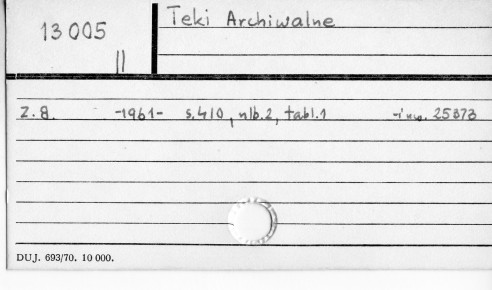 13005
II
Teki Archiwalne
Z. 8. -1961- s.410, nlb.2, tabl.1 -inw. 25373
DUJ. 693/70. 10 000.